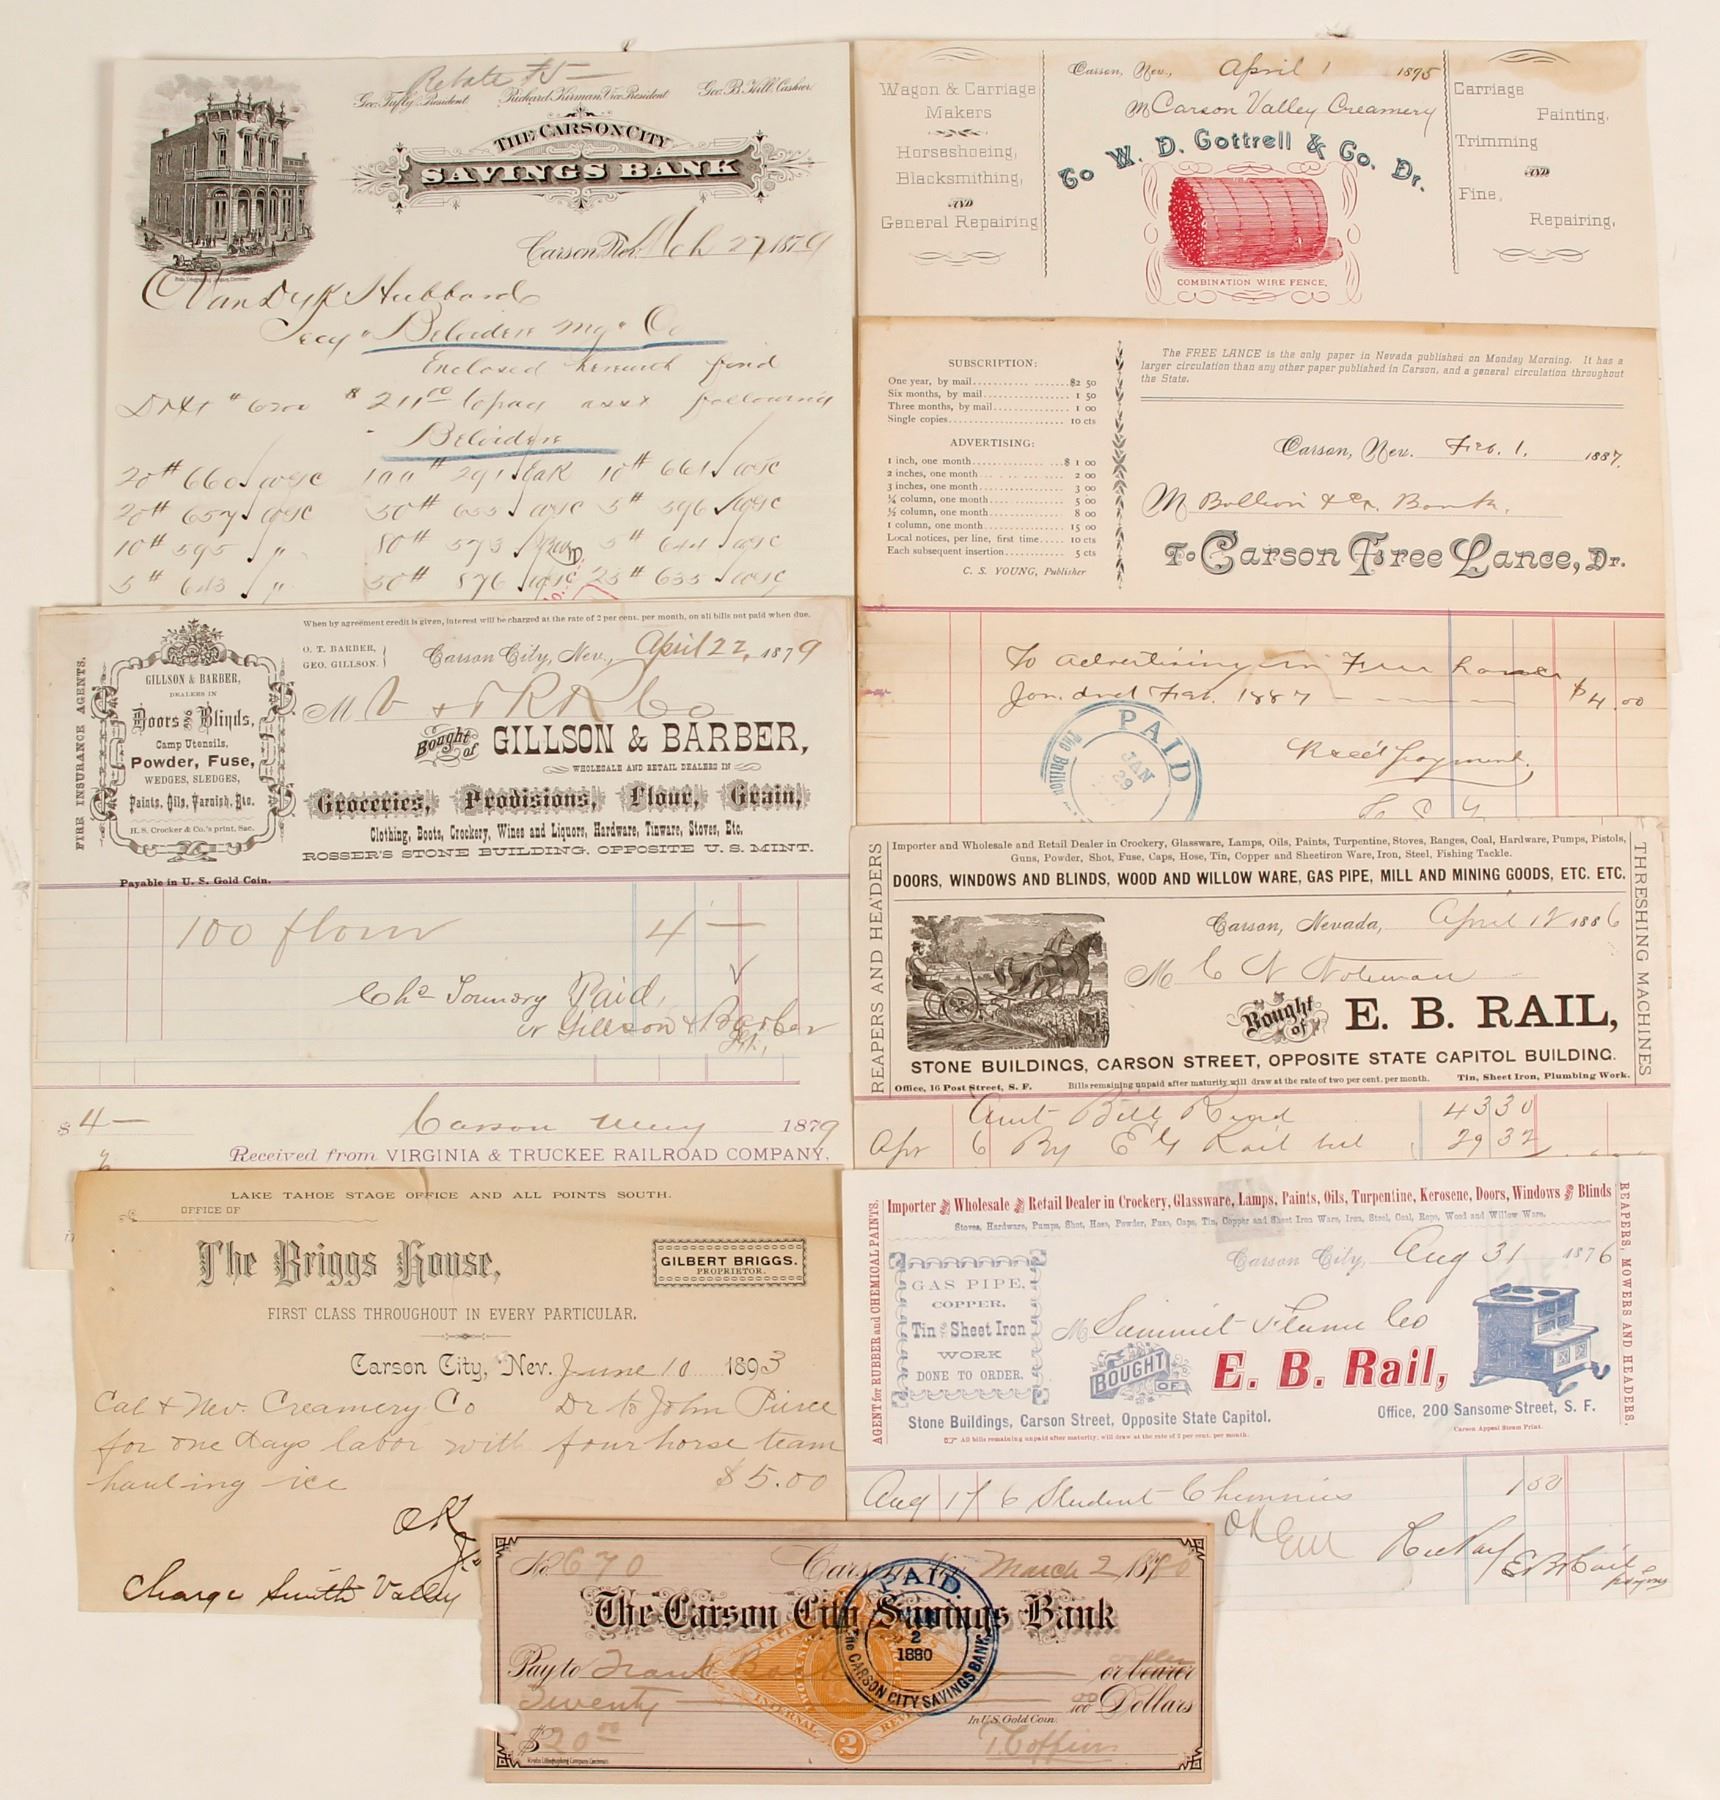 Rebate $5 —
Geo. Tufly. President Richard Kirman. Vice President Geo. B. Hill. Cashier.
THE CARSON CITY
SAVINGS BANK
Carson, Nev. Mch 27 1879
C Van Dyk Hubbard
Secy Belvidere Mg Co
Enclosed herewith find
Draft # 6200 $ 211.00 to pay asst following
Belvidere
20 # 660 10 # 661
20 # 657 50 # 633 5 # 596
10 # 595 " 80 # 573 5 # 644
5 # 643 " 50 # 576 25 # 635
Wagon & Carriage
Makers
Horseshoeing,
Blacksmithing,
AND
General Repairing
Carson, Nev., April 1 1895
M Carson Valley Creamery
To W. D. Cottrell & Co. Dr.
COMBINATION WIRE FENCE.
Carriage
Painting,
Trimming
AND
Fine,
Repairing,
SUBSCRIPTION:
One year, by mail ........ $2 50
Six months, by mail ........ 1 50
Three months, by mail ........ 1 00
Single copies ........ 10 cts
ADVERTISING:
1 inch, one month ........ $ 1 00
2 inches, one month ........ 2 00
3 inches, one month ........ 3 00
¼ column, one month ........ 5 00
½ column, one month ........ 8 00
1 column, one month ........ 15 00
Local notices, per line, first time ..... 10 cts
Each subsequent insertion ........ 5 cts
C. S. YOUNG, Publisher
The FREE LANCE is the only paper in Nevada published on Monday Morning. It has a
larger circulation than any other paper published in Carson, and a general circulation throughout
the State.
Carson, Nev. Feb. 1. 1887.
M Bullion & Ex. Bank.
To Carson Free Lance, Dr.
To Advertising in Free Lance
Jan. and Feb. 1887 — $4.00
Rec'd payment.
C S Y
PAID
JAN
29
The Bullion
When by agreement credit is given, interest will be charged at the rate of 2 per cent. per month, on all bills not paid when due.
FIRE INSURANCE AGENTS.
GILLSON & BARBER,
DEALERS IN
Doors and Blinds,
Camp Utensils,
Powder, Fuse,
WEDGES, SLEDGES,
Paints, Oils, Varnish, Etc.
H. S. Crocker & Co.'s print, Sac.
O. T. BARBER,
GEO. GILLSON.
Carson City, Nev., April 22, 1879
M V & T R R Co
Bought of GILLSON & BARBER,
WHOLESALE AND RETAIL DEALERS IN
Groceries, Provisions, Flour, Grain,
Clothing, Boots, Crockery, Wines and Liquors, Hardware, Tinware, Stoves, Etc.
ROSSER'S STONE BUILDING, OPPOSITE U. S. MINT.
Payable in U. S. Gold Coin.
100 flour 4 —
Paid,
Gillson & Barber
$ 4 — Carson May 1879
Received from VIRGINIA & TRUCKEE RAILROAD COMPANY,
REAPERS AND HEADERS
THRESHING MACHINES
Importer and Wholesale and Retail Dealer in Crockery, Glassware, Lamps, Oils, Paints, Turpentine, Stoves, Ranges, Coal, Hardware, Pumps, Pistols,
Guns, Powder, Shot, Fuse, Caps, Hose, Tin, Copper and Sheetiron Ware, Iron, Steel, Fishing Tackle.
DOORS, WINDOWS AND BLINDS, WOOD AND WILLOW WARE, GAS PIPE, MILL AND MINING GOODS, ETC. ETC.
Carson, Nevada, April 12 1886
M C N Noteware
Bought of E. B. RAIL,
STONE BUILDINGS, CARSON STREET, OPPOSITE STATE CAPITOL BUILDING.
Office, 16 Post Street, S. F. Bills remaining unpaid after maturity will draw at the rate of two per cent. per month. Tin, Sheet Iron, Plumbing Work.
Amt Bill Rend 43 30
Apr 6 By E G Rail bill 29 32
LAKE TAHOE STAGE OFFICE AND ALL POINTS SOUTH.
OFFICE OF
The Briggs House,
GILBERT BRIGGS.
PROPRIETOR.
FIRST CLASS THROUGHOUT IN EVERY PARTICULAR.
Carson City, Nev. June 10 1893
Cal & Nev. Creamery Co Dr to John Pierce
for one days labor with four horse team
hauling ice $5.00
OK
Charge Smith Valley
AGENT for RUBBER and CHEMICAL PAINTS.
REAPERS, MOWERS AND HEADERS.
Importer and Wholesale and Retail Dealer in Crockery, Glassware, Lamps, Paints, Oils, Turpentine, Kerosene, Doors, Windows and Blinds
Stoves, Hardware, Pumps, Shot, Hose, Powder, Fuse, Caps, Tin, Copper and Sheet Iron Ware, Iron, Steel, Coal, Rope, Wood and Willow Ware.
GAS PIPE,
COPPER,
Tin and Sheet Iron
WORK
DONE TO ORDER.
Carson City, Aug 31 1876
M Summit Flume Co
BOUGHT OF E. B. Rail,
Stone Buildings, Carson Street, Opposite State Capitol. Office, 200 Sansome Street, S. F.
All bills remaining unpaid after maturity, will draw at the rate of 2 per cent. per month. Carson Appeal Steam Print.
Aug 17 6 Student Chimnies 1 50
OK
E B Rail
No. 670 Carson March 2 1880
The Carson City Savings Bank
Pay to Frank or bearer
order
Twenty 00/100 Dollars
In U.S. Gold Coin.
$20.00 T. Coffin
Krebs Lithographing Company Cincinnati
2
PAID
2
1880
The CARSON CITY SAVINGS BANK